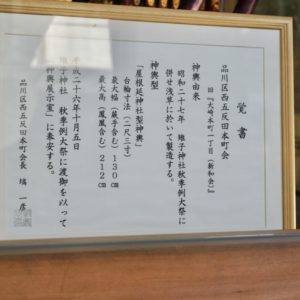 覚書
品川区西五反田本町会
旧『大崎本町一丁目(新和会)』
神輿由来
昭和二十七年 雉子神社秋季例大祭に
併せ浅草に於いて製造する。
神輿型
「屋根延神社型神輿」
台輪寸法(二尺三寸)
最大幅(蕨手含む)130cm
最大高(鳳凰含む)212cm
平成二十六年十月五日
雉子神社 秋季例大祭に渡御を以って
「神輿展示室」に奉安する。
品川区西五反田本町会長 塙 一彦